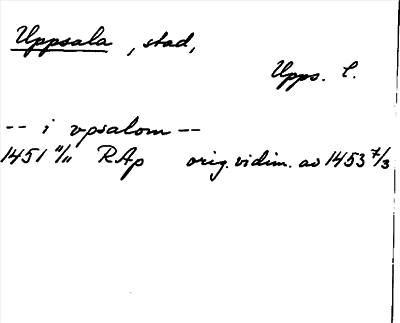 Uppsala, stad,
Upps. l.
-- i vpsalom --
1451 11/11 RAp orig. vidim. av 1453 7/3